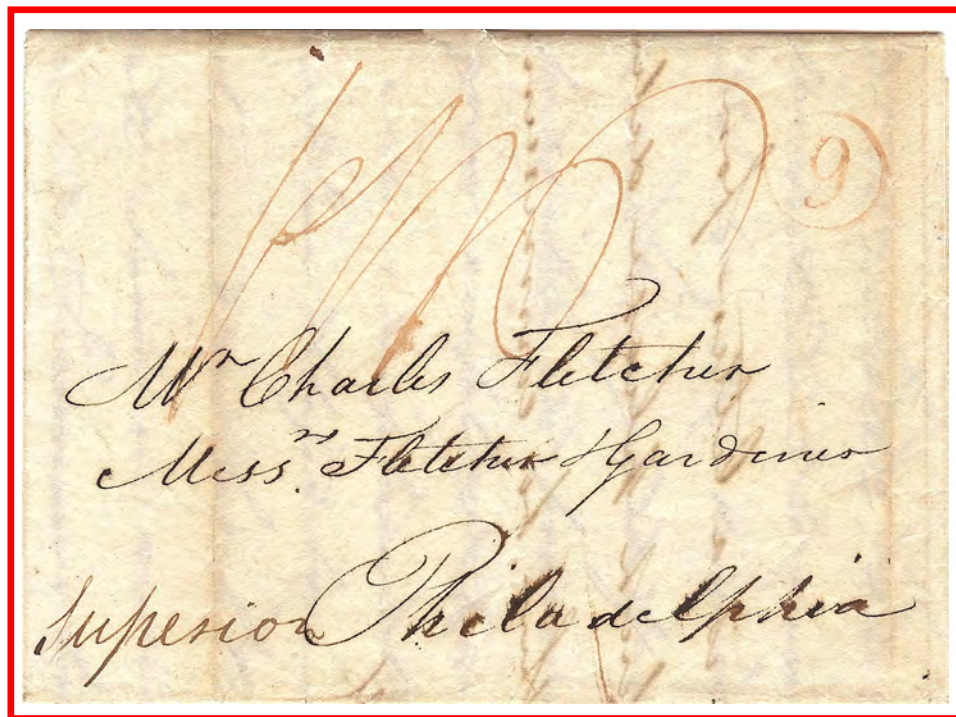 9
Mr Charles Fletcher
Messrs Fletcher & Gardiner
Superior Philadelphia